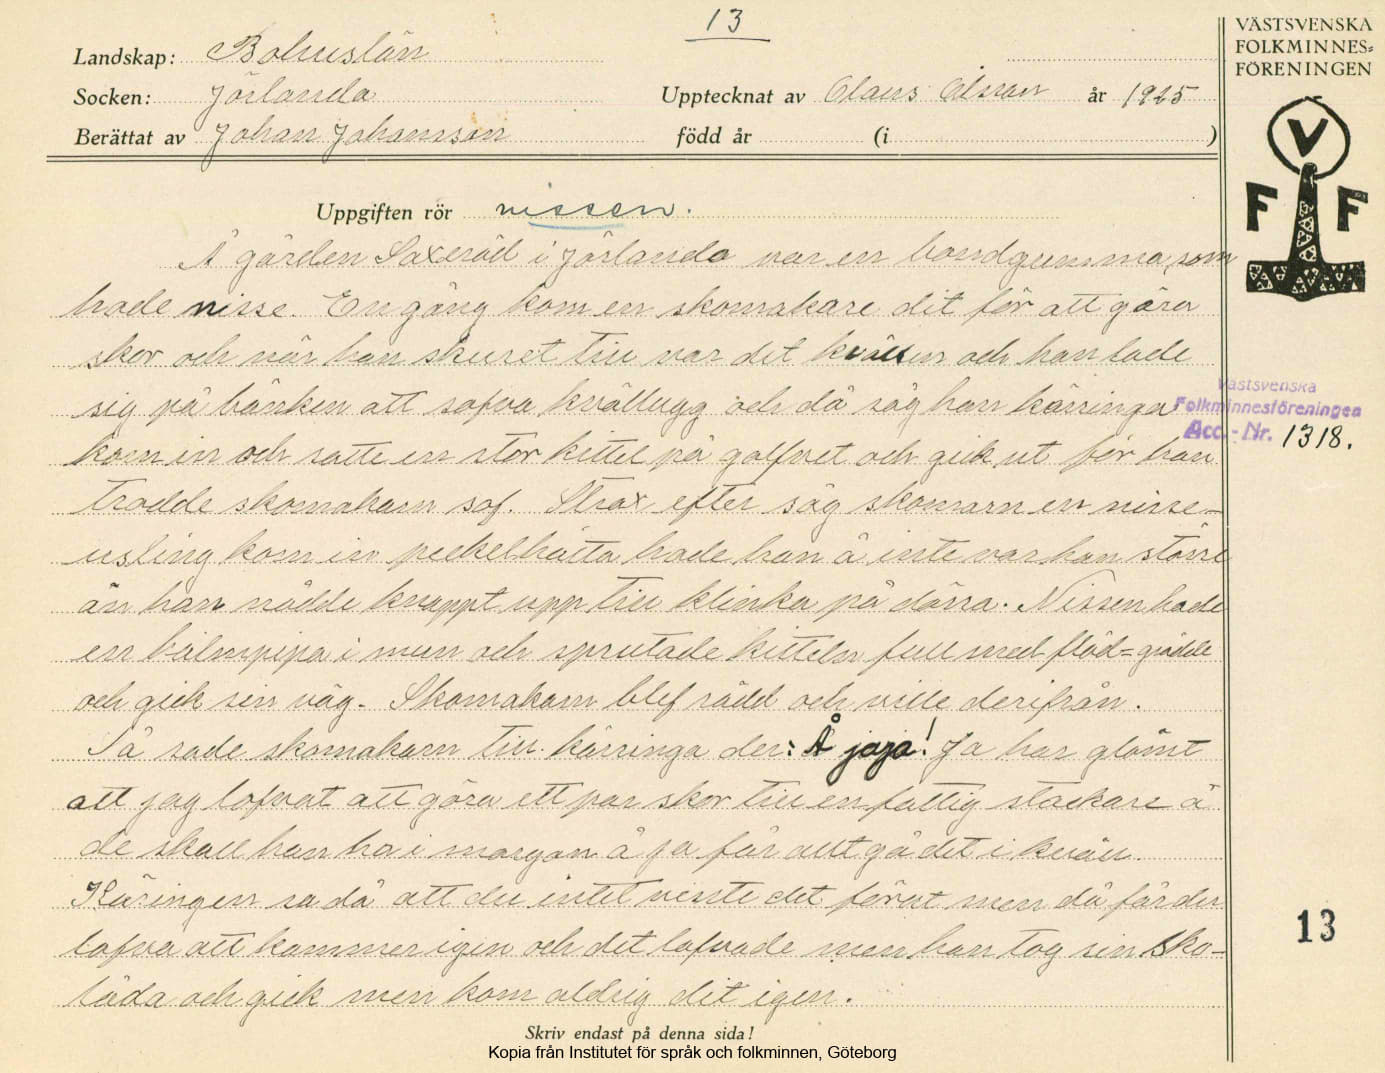 13
Landskap: Bohuslän
Socken: Jörlanda
Upptecknat av Olaus Olsson år 1925
Berättat av Johan Johansson född år (i )
VÄSTSVENSKA
FOLKMINNES-
FÖRENINGEN
V
F F
Uppgiften rör nissen.
Å gården Saxeröd i Jörlanda var en bondgumma, som
hade nisse. En gång kom en skomakare dit för att göra
skor och när han skuret till var det kvällen och han lade
sig på bänken att sofva kvällugg och då såg han käringa
kom in och satte en stor kittel på golfvet och gick ut för han
trodde skomakarn sof. Strax efter såg skomarn en nisse-
usling kom in peckelhätta hade han å inte var han större
än han nådde knappt upp till klinka på dörra. Nissen hade
en halmpipa i mun och sprutade kitteln full med flöd-grädde
och gick sin väg. Skomakarn blef rädd och ville derifrån.
Så sade skomakarn till käringa der: Å jaja! Ja har glömt
att jag lofvat att göra ett par skor till en fattig stackare å
de skall han ha i morgon å ja får allt gå det i kväll.
Käringen sa då att du intet visste det förut men då får du
lofva att kommer igen och det lofvade men han tog sin sko-
låda och gick men kom aldrig dit igen.
Västsvenska
Folkminnesföreningen
Acc.-Nr. 1318.
13
Skriv endast på denna sida!
Kopia från Institutet för språk och folkminnen, Göteborg